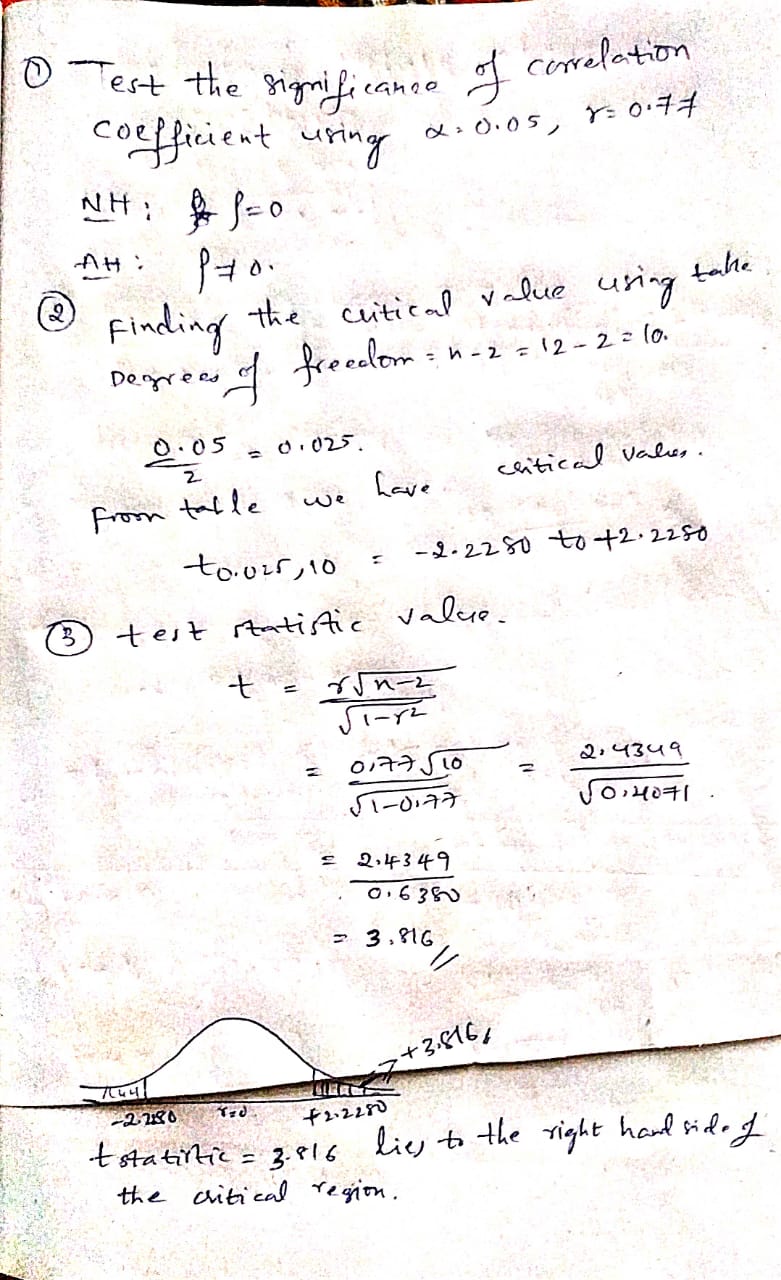 ① Test the significance of correlation
coefficient using α = 0.05, r = 0.77
NH: ρ=0
AH: ρ≠0.
② Finding the critical value using table
Degrees of freedom = n-2 = 12-2 = 10.
0.05/2 = 0.025.
From table we have critical values.
t0.025,10 = -2.2280 to +2.2280
③ test statistic value.
t = r√n-2 / √1-r2
= 0.77√10 / √1-0.77 = 2.4349 / √0.4071
= 2.4349 / 0.6380
= 3.816 //
+3.816
-2.2280 r=0 +2.2280
t statistic = 3.816 lies to the right hand side of
the critical region.